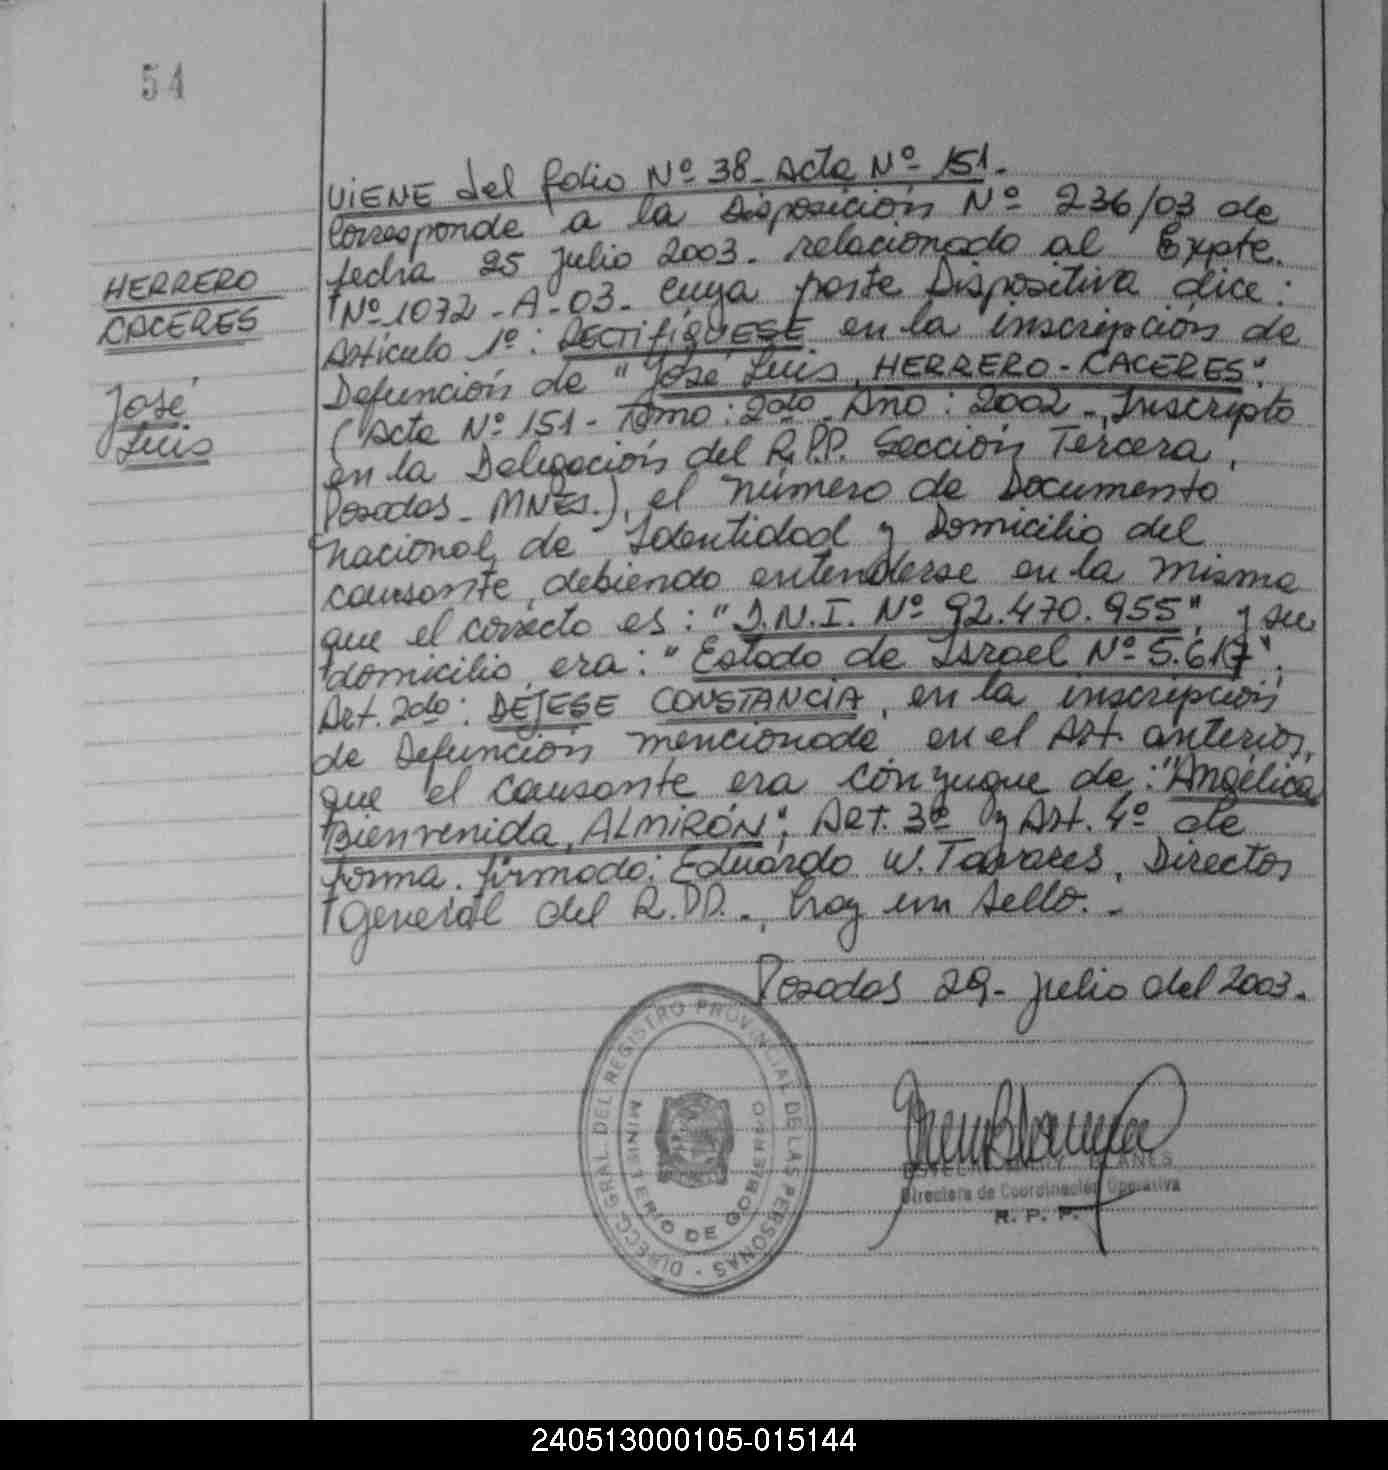 54
VIENE del folio Nº 38 - Acta Nº 151.
Corresponde a la Disposición Nº 236/03 de
fecha 25 julio 2003. relacionado al Expte.
Nº 1072 - A - 03 - cuya parte Dispositiva dice:
Artículo 1º: RECTIFÍQUESE en la inscripción de
Defunción de "José Luis, HERRERO - CACERES",
(Acta Nº 151 - Tomo: 2do - Año: 2002 -, Inscripto
en la Delegación del R.P.P. Sección Tercera,
Posadas - MNES.), el número de Documento
nacional de Identidad y Domicilio del
causante, debiendo entenderse en la misma
que el correcto es: "D.N.I. Nº 92.470.955", y su
domicilio, era: "Estado de Israel Nº 5.617",
Art. 2do: DÉJESE CONSTANCIA, en la inscripción
de Defunción mencionada en el Art. anterior,
que el causante era cónyugue de: "Angélica
Bienvenida, ALMIRÓN"; ART. 3º y Art. 4º de
forma. firmado: Eduardo W. Tavares, Director
General del R.P.P. -, hay un sello. -
Posadas 29 - julio del 2003.
HERRERO
CACERES
José
Luis
DIRECC. GRAL. DEL REGISTRO PROVINCIAL DE LAS PERSONAS -
MINISTERIO DE GOBIERNO
Directora de Coordinación Operativa
R. P. P.
240513000105-015144